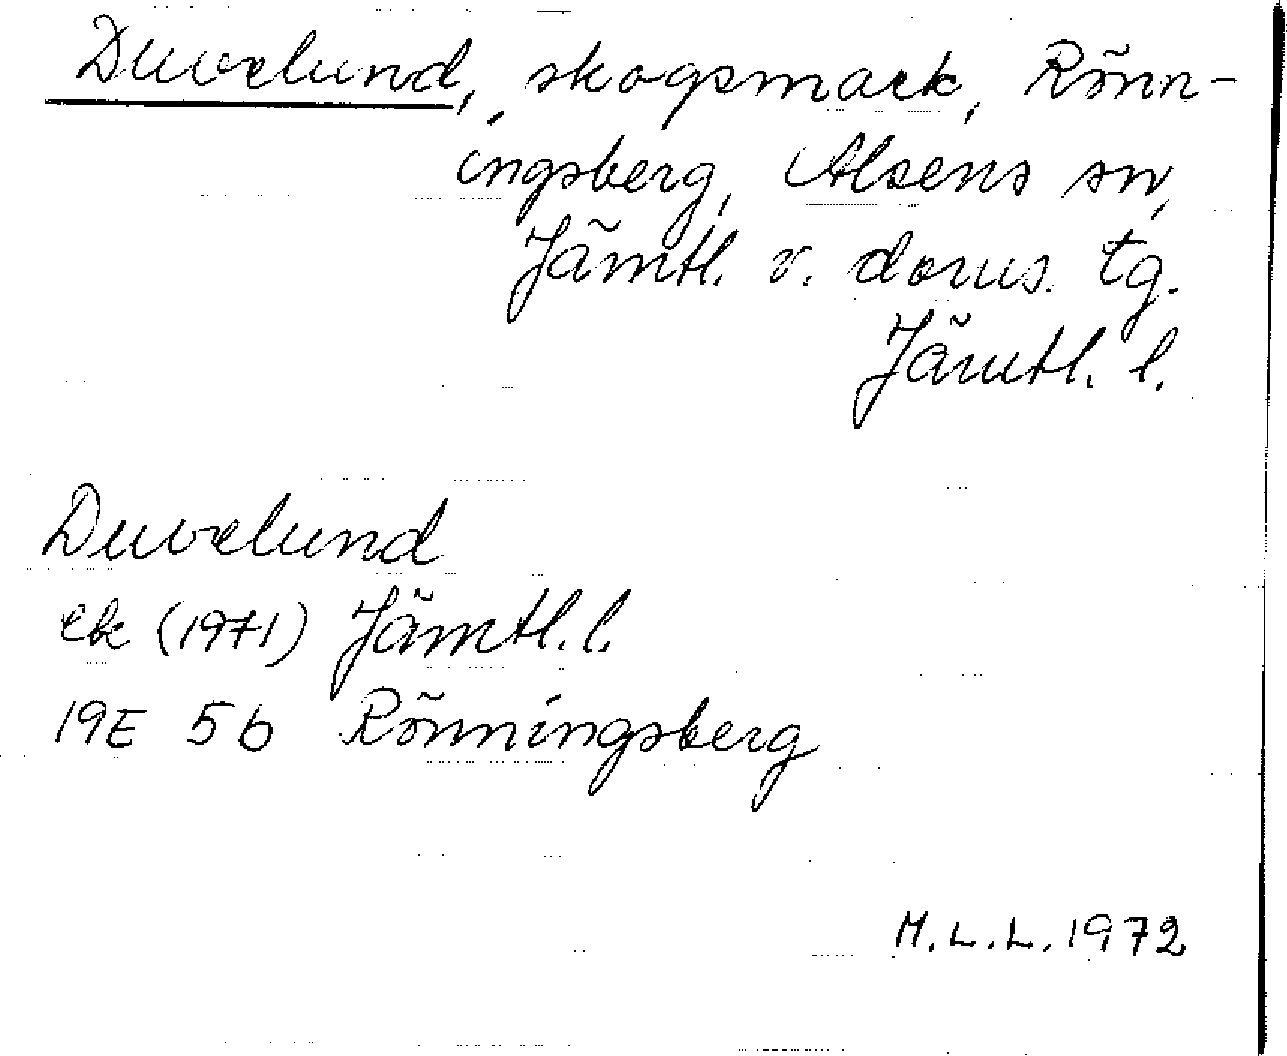 Duvelund, skogsmark, Rönn-
ingsberg, Alsens sn,
Jämtl. v. doms. tg.
Jämtl. l.
Duvelund
ek (1971) Jämtl. l.
19E 5b Rönningsberg
M.L.L. 1972